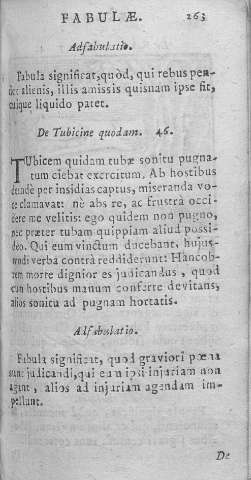 FABULÆ. 263
Adfabulatio.
Fabula significat, quòd, qui rebus pen-
det alienis, illis amissis quisnam ipse sit,
cuique liquido patet.
De Tubicine quodam. 46.
TUbicem quidam tubæ sonitu pugna-
tum ciebat exercitum. Ab hostibus
deinde per insidias captus, miseranda vo-
ce clamavat: nè abs re, ac frustra occi-
dere me velitis: ego quidem non pugno,
nec præter tubam quippiam aliud possi-
deo. Qui eum vinctum ducebant, hujus-
modi verba contrà reddiderunt: Hancob-
rem morte dignior es judicandus, quòd
cun hostibus manum conferre devitans,
alios sonitu ad pugnam hortatis.
Adfabulatio.
Fabula significat, quod graviori pœna
sunt judicandi, qui cum ipsi injuriam non
agunt, alios ad injuriam agendam im-
pellunt.
De